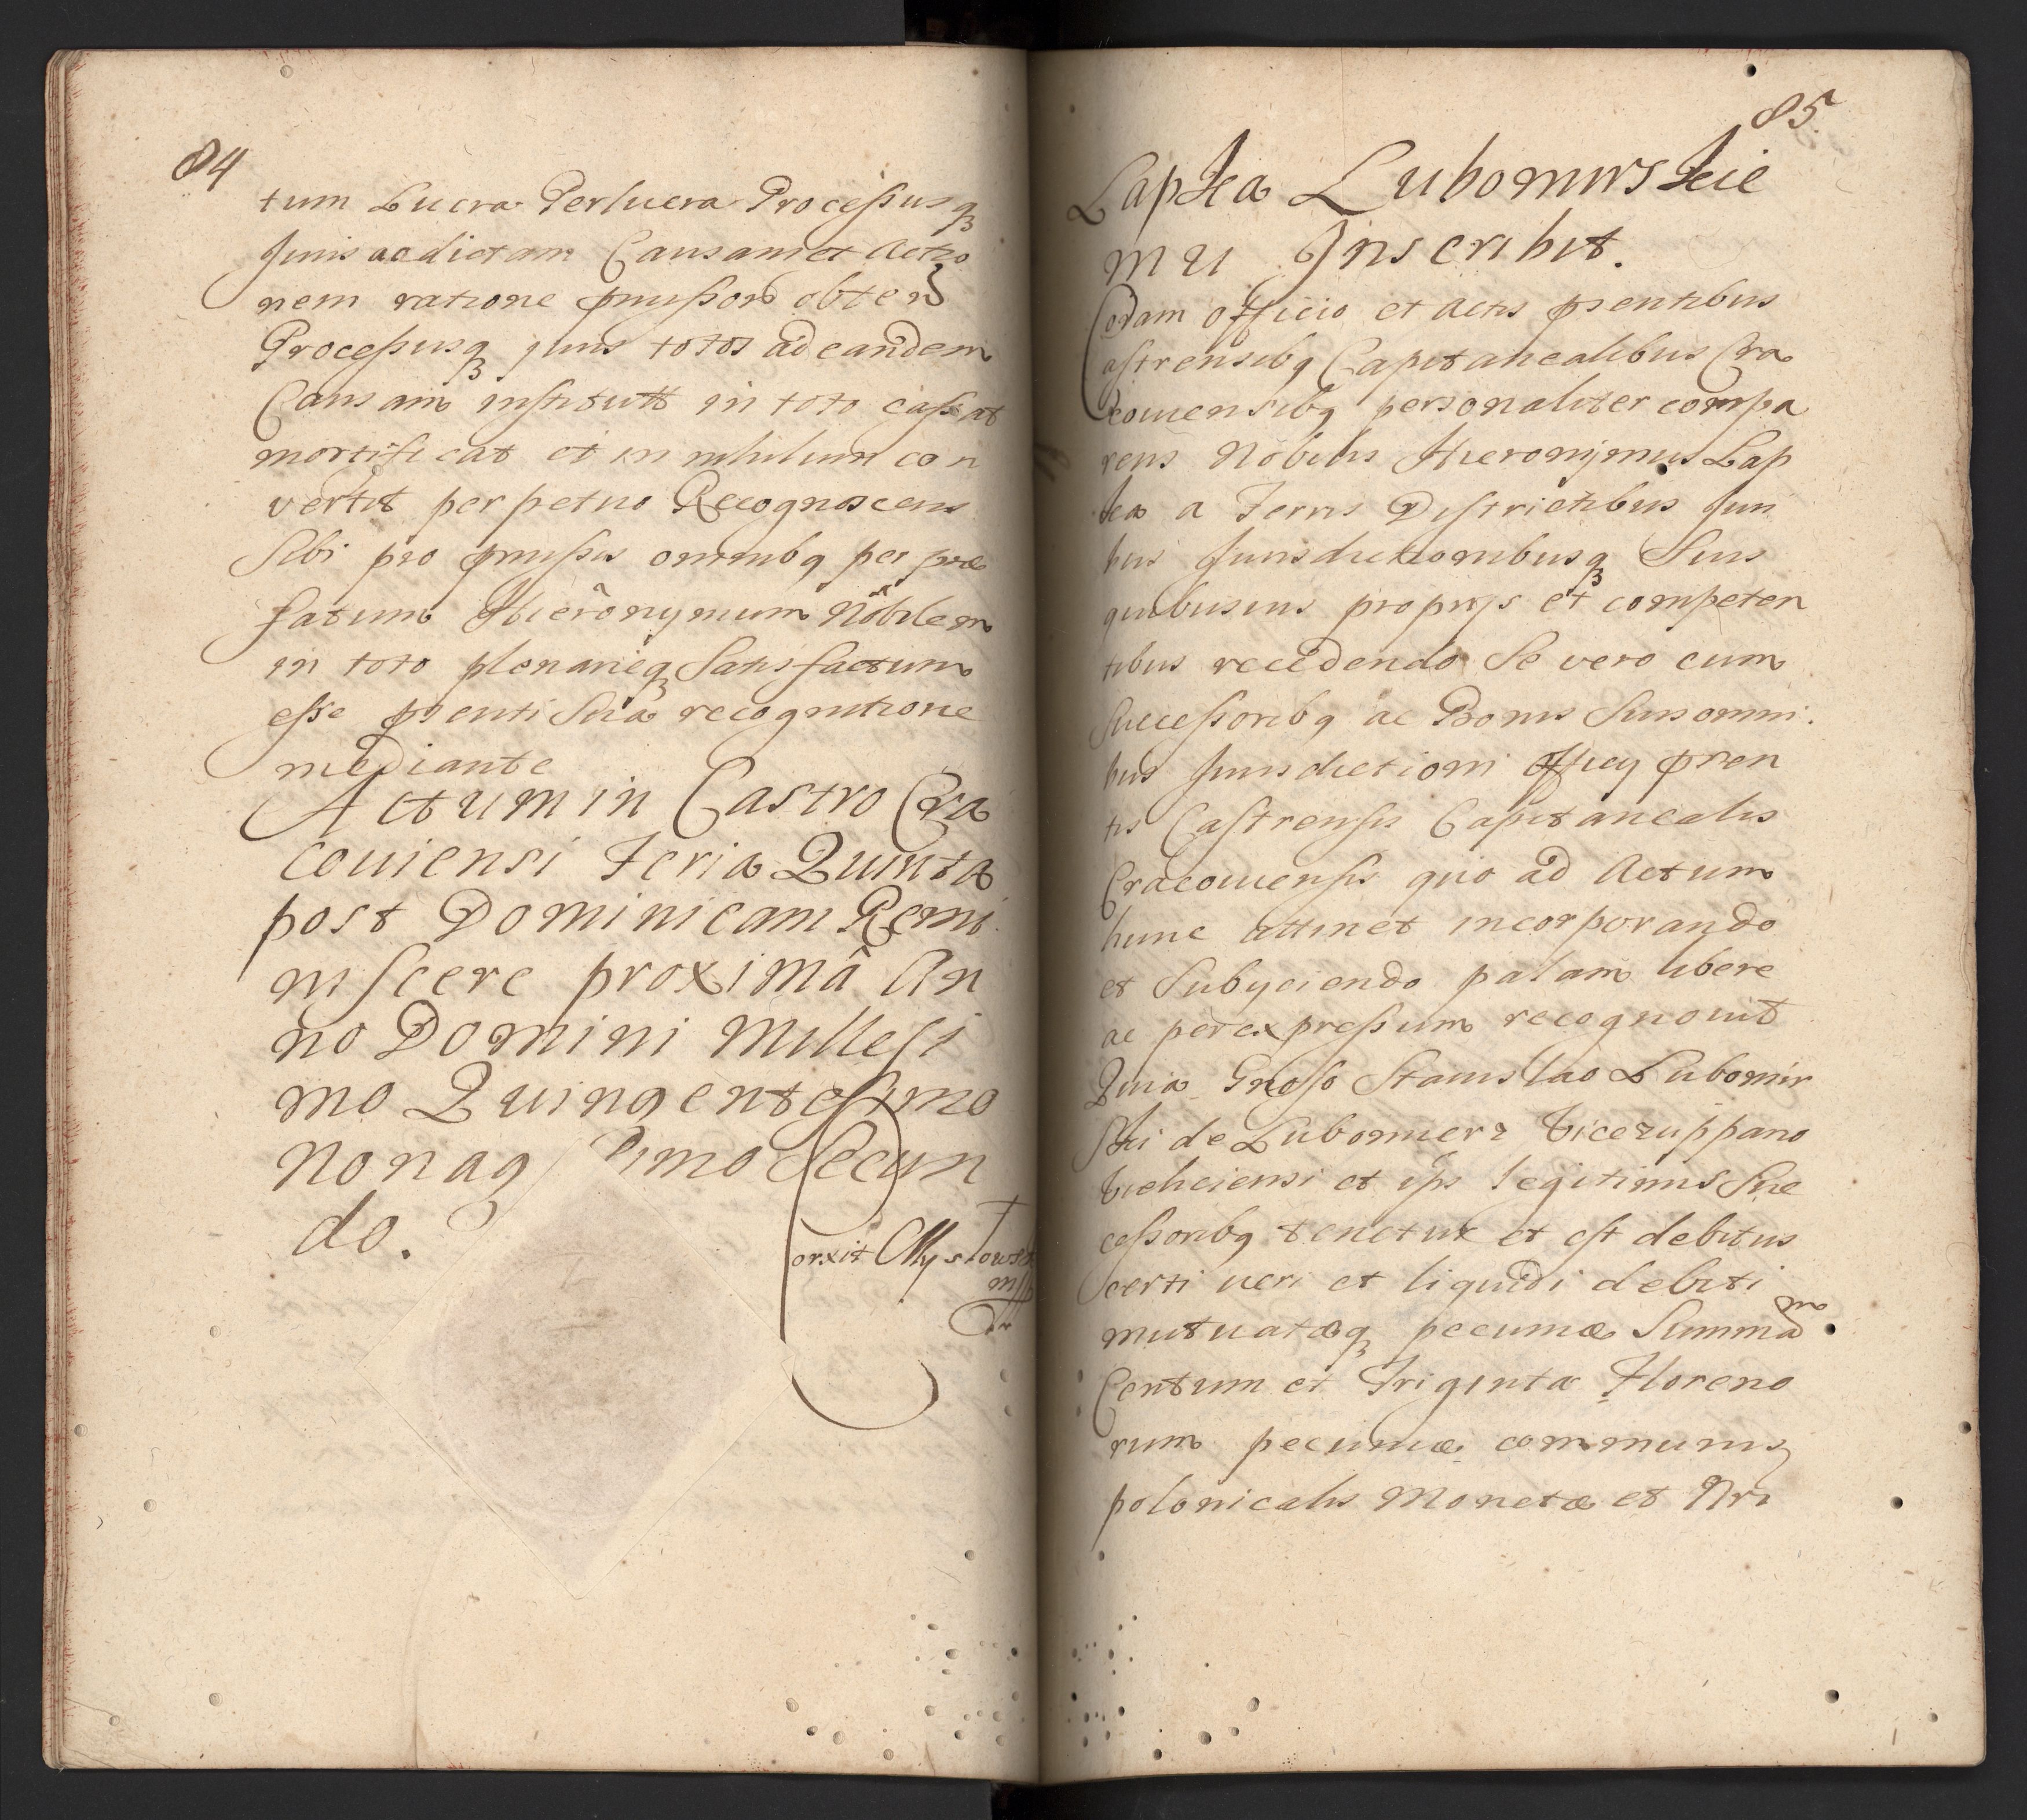 84
tum Lucra Perlucra Processusq
Juris ad dictam Causam et Actio
nem ratione pmissor obten
Processusq juris totos ad eandem
Causam institutt in toto cassat
mortificat et in nihilum con
vertit perpetuo Recognoscens
Sibi pro pmissis omnibq per præ
fatum Hieronymum Nobilem
in toto plenarieq Satisfactum
esse psenti Sua recognitione
mediante
Actum in Castro Cra
couiensi Feria Quinta
post Dominicam Remi
niscere proximâ An
no Domini Millesi
mo Quingentesimo
Nonag simo Secun
do.
orxit
85
Lapka Lubomirskie
mu Inscribit.
Coram officio et actis psentibus
Castrensibq Capitanealibus Cra
couiensibq personaliter compa
rens Nobilis Hieronijmus Lap
ka a Terris Districtibus Juri
bus Jurisdictionibusq Suis
quibusuis proprijs et competen
tibus recedendo Se vero cum
Successoribq ac Bonis Suis omni
bus Jurisdictioni officij psen
tis Castrensis Capitanealis
Cracouiensis quo ad Actum
hunc attinet incorporando
et Subijciendo palam libere
ac per expressum recognouit
Quia Gnoso Stanislao Lubomir
ski de Lubomierz Vicezuppano
Vieliciensi et ipsi legitimis Suc
cessoribq tenetur et est debitus
certi ueri et liquidi debiti
mutuatæq pecuniæ Summam
Centum et Triginta Floreno
rum pecuniæ communis
polonicalis Monetæ et Nri